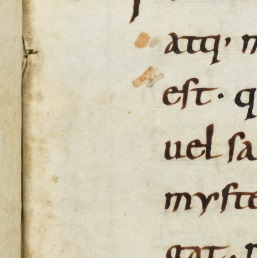 atq;
est. q
uel sa
myste
gat.